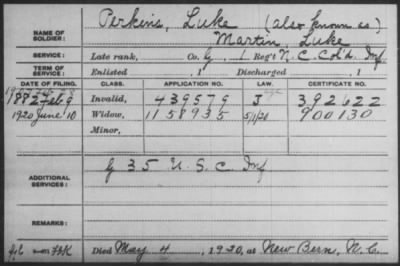 NAME OF SOLDIER: Perkins, Luke (also known as)
Martin, Luke
SERVICE: Late rank, Co. G, 1 Reg't N. C. Col'd. Inf
TERM OF SERVICE: Enlisted , 1 Discharged , 1
DATE OF FILING. CLASS. APPLICATION NO. LAW. CERTIFICATE NO.
1882 Feb. 9 Invalid, 439579 J 392622
1920 June 10 Widow, 1158935 5/1/20 900130
Minor,
ADDITIONAL SERVICES: G 35 U. S. C. Inf
REMARKS:
Died May 4, 1920, at New Bern, N. C.